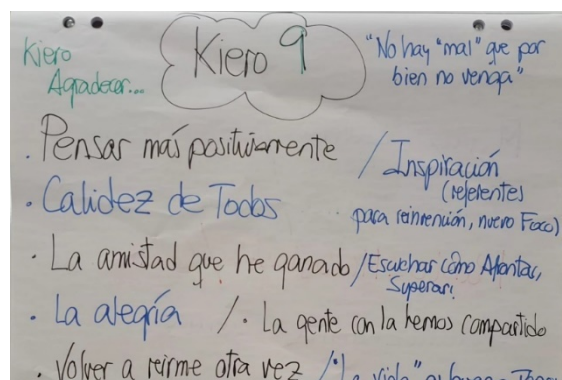 Kiero 9
Kiero
Agradecer...
"No hay "mal" que por
bien no venga"
. Pensar más positivamente / Inspiración
(referentes
para reinvención, nuevo Foco)
. Calidez de Todos
. La amistad que he ganado / Escuchar cómo Afrontar,
Superar!
. La alegría / . La gente con la hemos compartido
. Volver a reirme otra vez / "La vida"